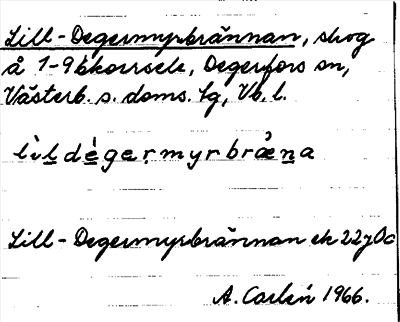 Lill-Degermyrbrännan, skog
å 1-9 bkorrsele, Degerfors sn,
Västerb. s. doms. lg, Vb. l.
lìl dègermyrbräna
Lill-Degermyrbrännan ek 22 j 0c
A. Carlén 1966.